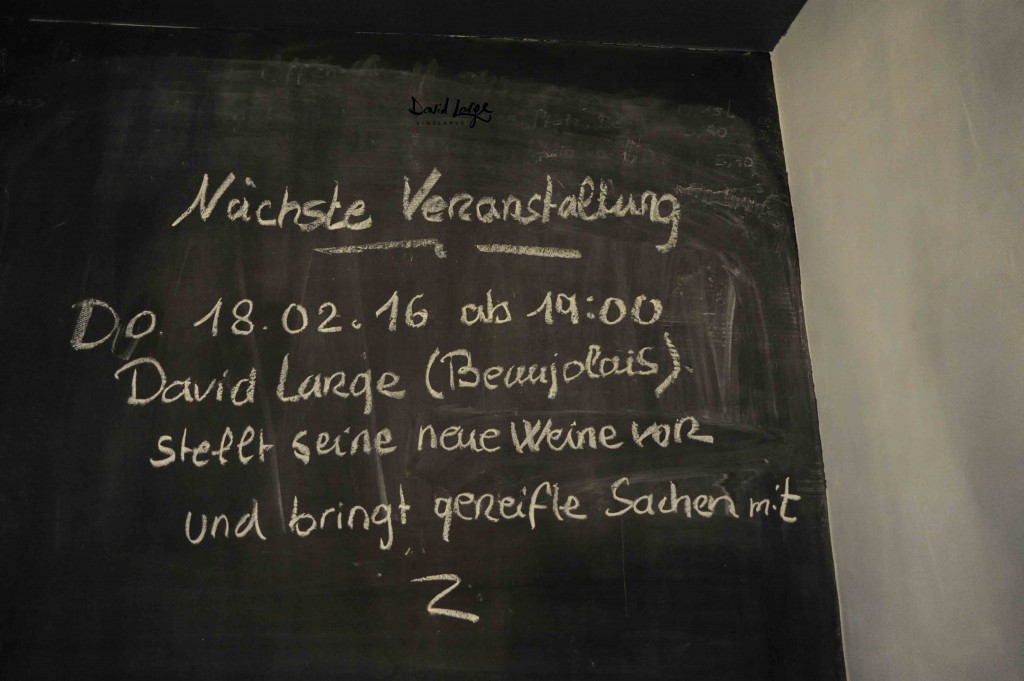 David Large
Nächste Veranstaltung
Do 18.02.16 ab 19:00
David Large (Beaujolais)
stellt seine neue Weine vor
und bringt gereifte Sachen mit